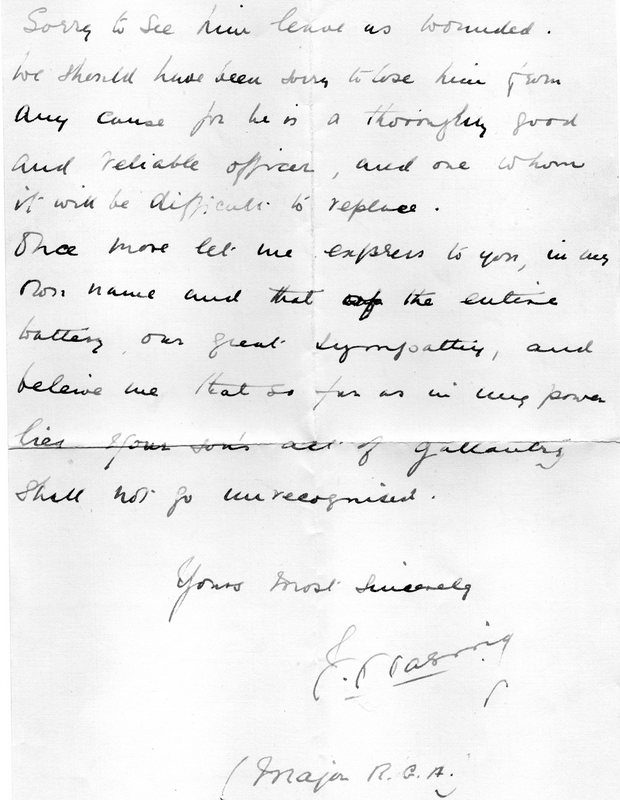 Sorry to see him leave us wounded.
We should have been sorry to lose him from
any cause for he is a thoroughly good
and reliable officer, and one whom
it will be difficult to replace.
Once more let me express to you, in my
own name and that of the entire
battery, our great sympathy, and
beleive me that so far as in my power
lies your son's act of gallantry
shall not go unrecognised.
Yours most sincerely
J.
(Major R.G.A.